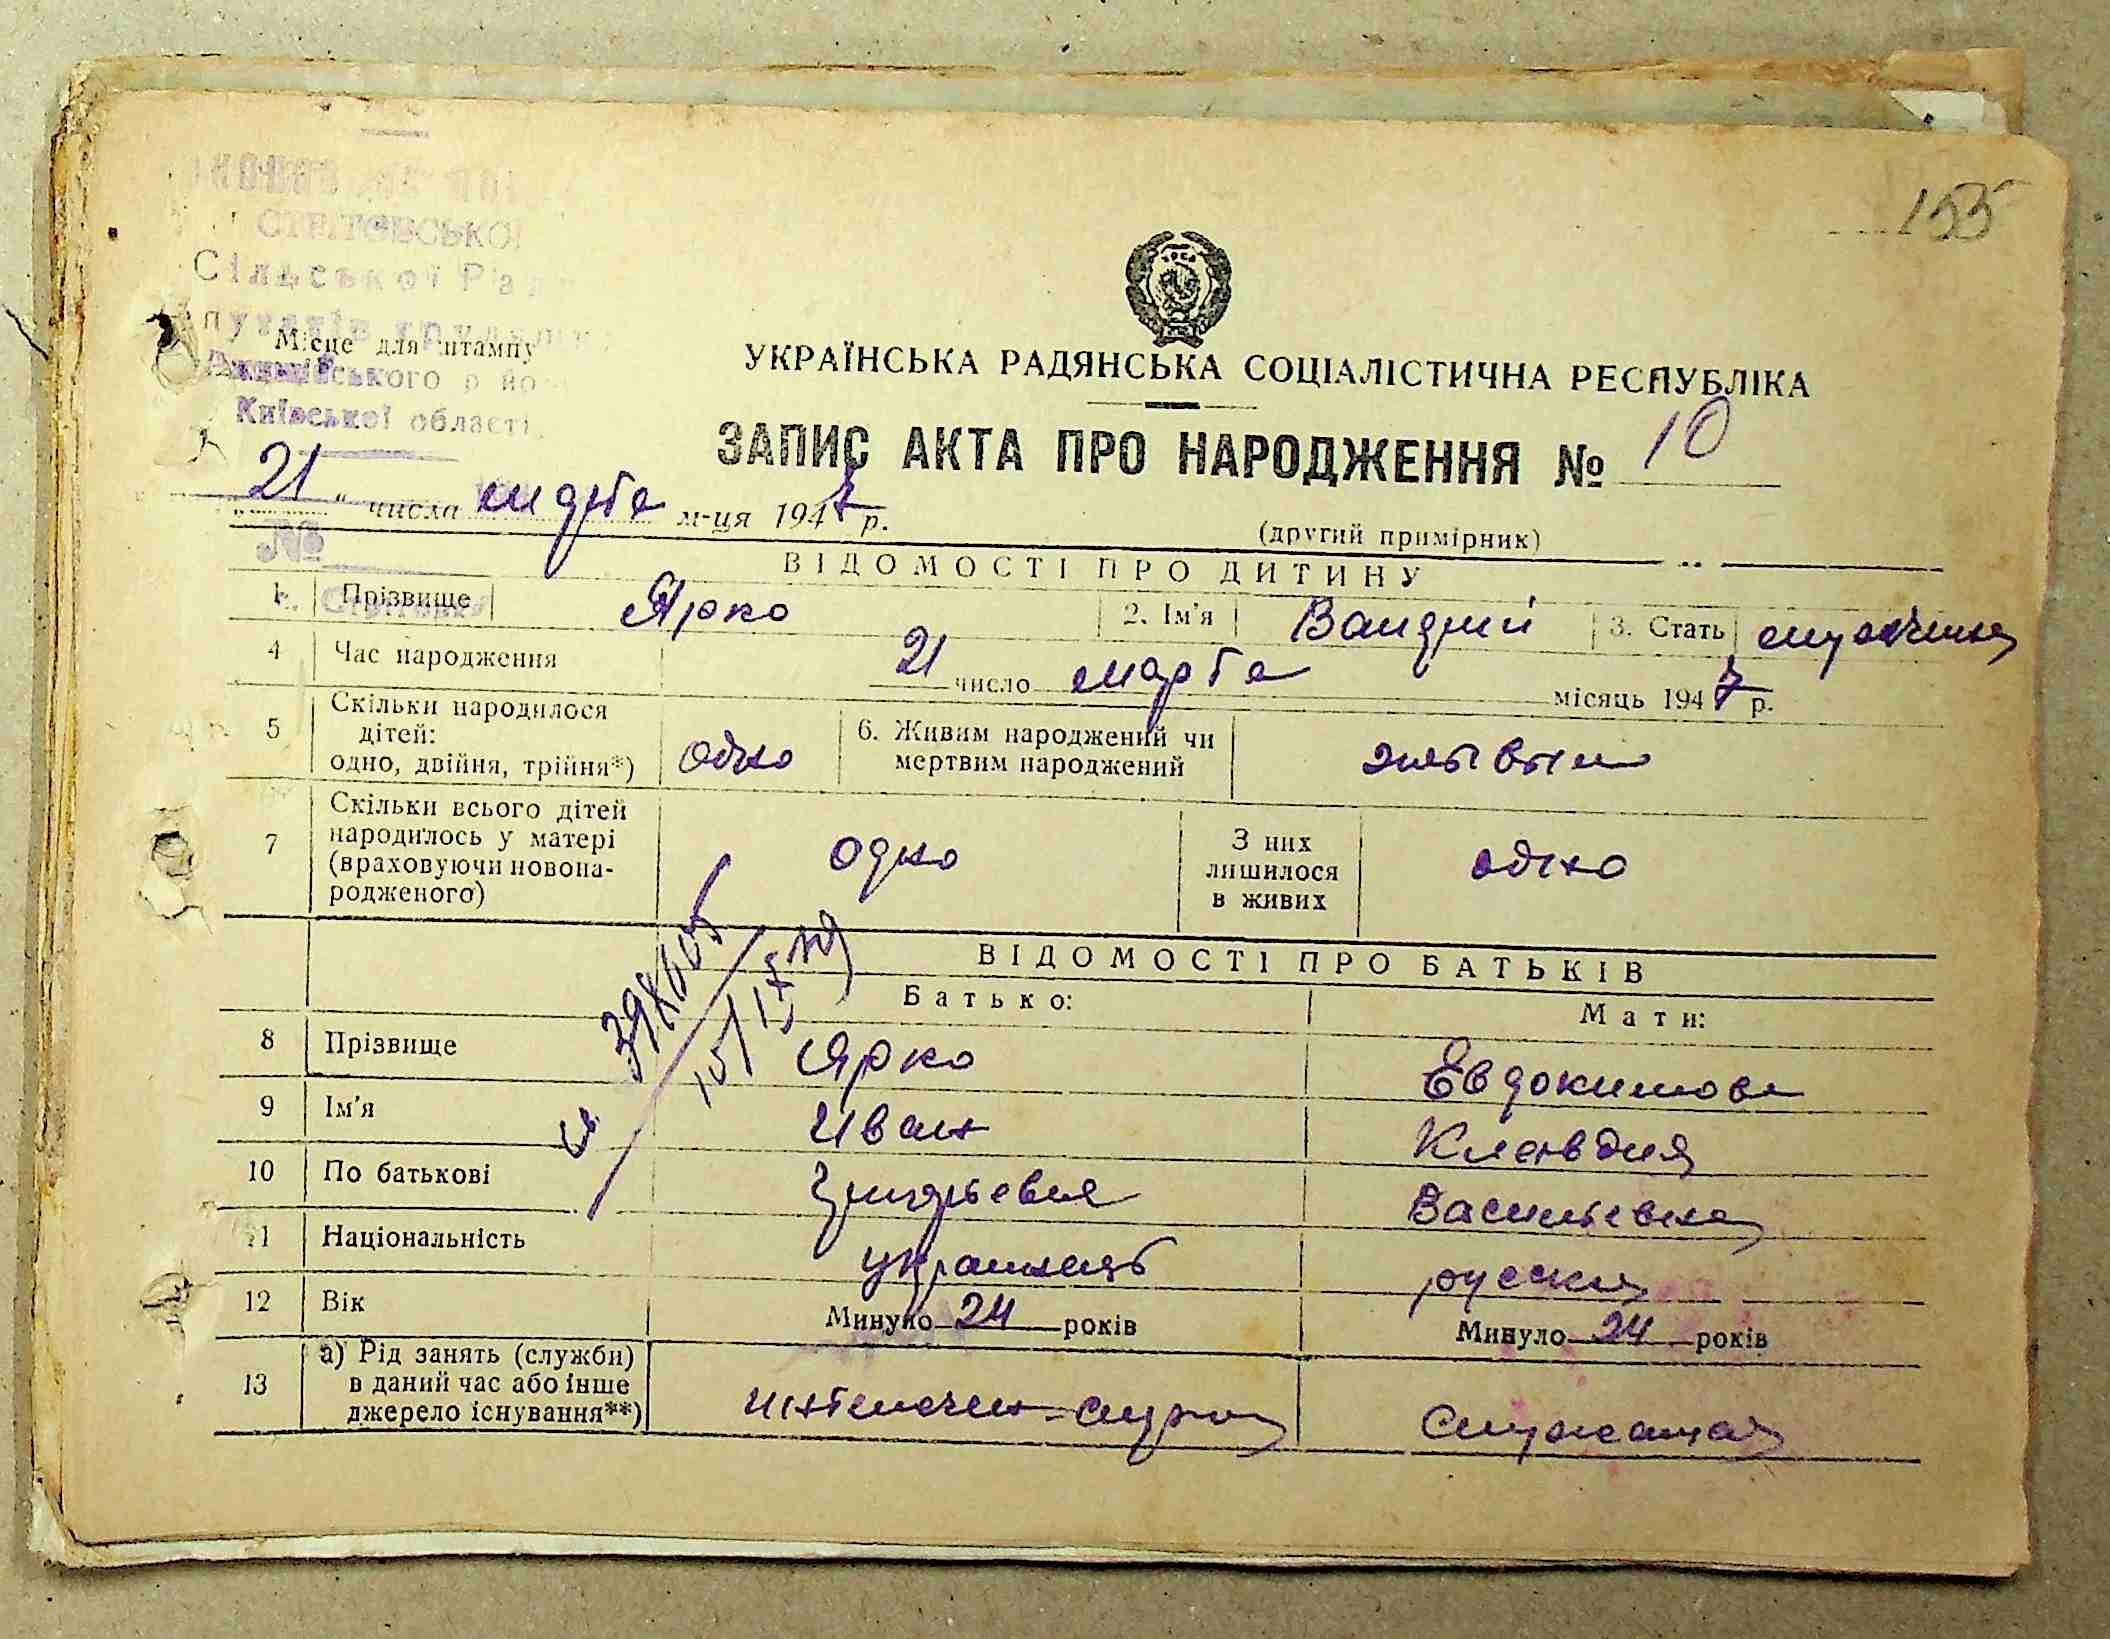 155
СТЕТОВСЬКОЇ
Сільської Рад
Місце для штампу
Київської області
УКРАЇНСЬКА РАДЯНСЬКА СОЦІАЛІСТИЧНА РЕСПУБЛІКА
ЗАПИС АКТА ПРО НАРОДЖЕННЯ № 10
„ 21 “ числа марта м-ця 1947 р.
(другий примірник)
№
ВІДОМОСТІ ПРО ДИТИНУ
1. Прізвище Ярко 2. Ім'я Валерий 3. Стать мужчина
4 Час народження 21 число марта місяць 1947 р.
5 Скільки народилося дітей: одно, двійня, трійня*) одно 6. Живим народжений чи мертвим народжений живым
7 Скільки всього дітей народилось у матері (враховуючи новонародженого) одно З них лишилося в живих одно
ВІДОМОСТІ ПРО БАТЬКІВ
Батько: Мати:
8 Прізвище Ярко Евдокимова
9 Ім'я Иван Клавдия
10 По батькові Григорьевич Васильевна
11 Національність украинець русская
12 Вік Минуло 24 років Минуло 24 років
13 а) Рід занять (служби) в даний час або інше джерело існування**) служащая